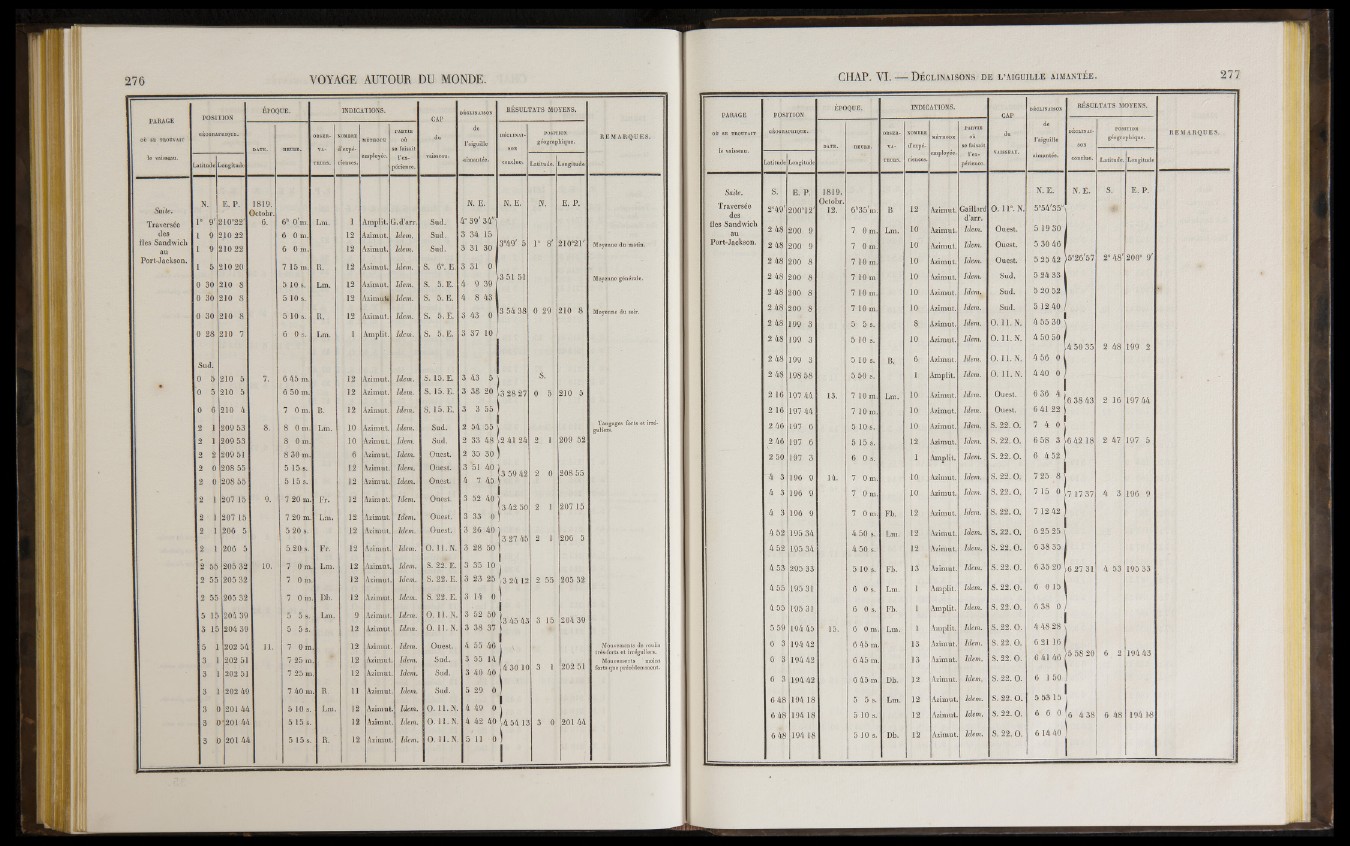 276 VOYAGE AUTOUR DU MONDE.
PARAGE OÙ SE TROUVAIT le vaisseau. | POSITION GÉOGRAPHIQUE. Latitude Longitude | ÉPOQUE. DATE. HEURE. | INDICATIONS. OBSERVATEURS. NOMBRE d'expériences. MÉTHODE employée. PARTIE où se faisait l'expérience. | CAP du vaisseau. | DÉCLINAISON de l'aiguille aimantée. | RÉSULTATS MOYENS. DÉCLINAISON conclue. POSITION géographique. Latitude. Longitude | REMARQUES.
Suite. Traversée des îles Sandwich au Port-Jackson.
N. E. P. 1819. Octobr. N. E. N. E. N. E. P.
1° 9' 210°22' 6. 6h 0'm. Lm. 1 Amplit. G. d'arr. Sud. 4° 39' 34"
1 9 210 22 6 0 m. 12 Azimut. Idem. Sud. 3 34 15
1 9 210 22 6 0 m. 12 Azimut. Idem. Sud. 3 31 30 3°49' 5 1° 8' 210°21' Moyenne du matin.
1 5 210 20 7 15 m. R. 12 Azimut. Idem. S. 6°. E. 3 31 0
3 51 51 Moyenne générale.
0 30 210 8 5 10 s. Lm. 12 Azimut. Idem. S. 5. E. 4 9 39
0 30 210 8 5 10 s. 12 Azimut. Idem. S. 5. E. 4 8 43
0 30 210 8 5 10 s. R. 12 Azimut. Idem. S. 5. E. 3 43 0 3 54 38 0 29 210 8 Moyenne du soir.
0 28 210 7 6 0 s. Lm. 1 Amplit. Idem. S. 5. E. 3 37 10
Sud. S.
0 5 210 5 7. 6 45 m. 12 Azimut. Idem. S. 15. E. 3 43 5
0 5 210 5 6 50 m. 12 Azimut. Idem. S. 15. E. 3 38 20 3 28 27 0 5 210 5
0 6 210 4 7 0 m. R. 12 Azimut. Idem. S. 15. E. 3 3 55
2 1 209 53 8. 8 0 m. Lm. 10 Azimut. Idem. Sud. 2 54 55 Tangages forts et irréguliers.
2 1 209 53 8 0 m. 10 Azimut. Idem. Sud. 2 33 48 2 41 24 2 1 209 52
2 2 209 51 8 30 m. 6 Azimut. Idem. Ouest. 2 35 30
2 0 208 55 5 15 s. 12 Azimut. Idem. Ouest. 3 51 40
2 0 208 55 5 15 s. 12 Azimut. Idem. Ouest. 4 7 45 3 59 42 2 0 208 55
2 1 207 15 9. 7 20 m. Fr. 12 Azimut. Idem. Ouest. 3 52 40
2 1 207 15 7 20 m. Lm. 12 Azimut. Idem. Ouest. 3 33 0 3 42 50 2 1 207 15
2 1 206 5 5 20 s. 12 Azimut. Idem. Ouest. 3 26 40
2 1 206 5 5 20 s. Fr. 12 Azimut. Idem. O. 11. N. 3 28 50 3 27 45 2 1 206 5
2 55 205 32 10. 7 0 m. Lm. 12 Azimut. Idem. S. 22. E. 3 35 10
2 55 205 32 7 0 m. 12 Azimut. Idem. S. 22. E. 3 23 25 3 24 12 2 55 205 32
2 55 205 32 7 0 m. Db. 12 Azimut. Idem. S. 22. E. 3 14 0
3 15 204 39 5 5 s. Lm. 9 Azimut. Idem. O. 11. N. 3 52 50
3 15 204 39 5 5 s. 12 Azimut. Idem. O. 11. N. 3 38 37 3 45 43 3 15 204 39
3 1 202 54 11. 7 0 m. 12 Azimut. Idem. Ouest. 4 55 46 Mouvements de roulis très forts et irréguliers.
3 1 202 51 7 25 m. 12 Azimut. Idem. Sud. 3 55 14 Mouvements moins forts que précédemment.
3 1 202 51 7 25 m. 12 Azimut. Idem. Sud. 3 40 40 4 30 10 3 1 202 51
3 1 202 49 7 40 m. B. 11 Azimut. Idem. Sud. 5 29 0
3 0 201 44 5 10 s. Lm. 12 Azimut. Idem. O. 11. N. 4 49 0
3 0 201 44 5 15 s. 12 Azimut. Idem. O. 11. N. 4 42 40 4 54 13 3 0 201 44
3 0 201 44 5 15 s. R. 12 Azimut. Idem. O. 11. N. 5 11 0
CHAP. VI. — DÉCLINAISONS DE L'AIGUILLE AIMANTÉE. 277
PARAGE OÙ SE TROUVAIT le vaisseau. | POSITION GÉOGRAPHIQUE. Latitude Longitude | ÉPOQUE. DATE. HEURE. | INDICATIONS. OBSERVATEURS. NOMBRE d'expériences. MÉTHODE employée. PARTIE où se faisait l'expérience. | CAP du VAISSEAU. | DÉCLINAISON de l'aiguille aimantée. | RÉSULTATS MOYENS. DÉCLINAISON conclue. POSITION géographique. Latitude. Longitude | REMARQUES.
Suite. Traversée des îles Sandwich au Port-Jackson.
S. E. P. 1819. Octobr. N. E. N. E. S. E. P.
2°49' 200°12' 12. 6h35'm. B 12 Azimut. Gaillard d'arr. O. 11°. N. 5°54'35"
2 48 200 9 7 0 m. Lm. 10 Azimut. Idem. Ouest. 5 19 30
2 48 200 9 7 0 m. 10 Azimut. Idem. Ouest. 5 30 46
2 48 200 8 7 10 m. 10 Azimut. Idem. Ouest. 5 25 42 5°26'57 2° 48' 200° 9'
2 48 200 8 7 10 m. 10 Azimut. Idem. Sud. 5 24 33
2 48 200 8 7 10 m. 10 Azimut. Idem. Sud. 5 20 52
2 48 200 8 7 10 m. 10 Azimut. Idem. Sud. 5 12 40
2 48 199 3 5 5 s. 8 Azimut. Idem. O. 11. N. 4 55 30
2 48 199 3 5 10 s. 10 Azimut. Idem. O. 11. N. 4 50 50 4 50 35 2 48 199 2
2 48 199 3 5 10 s. B. 6 Azimut. Idem. O. 11. N. 4 56 0
2 48 198 58 5 50 s. 1 Amplit. Idem. O. 11. N. 4 40 0
2 16 197 44 13. 7 10 m. Lm. 10 Azimut. Idem. Ouest. 6 36 4
2 16 197 44 7 10 m. 10 Azimut. Idem. Ouest. 6 41 22 6 38 43 2 16 197 44
2 46 197 6 5 10 s. 10 Azimut. Idem. S. 22. O. 7 4 0
2 46 197 6 5 15 s. 12 Azimut. Idem. S. 22. O. 6 58 3 6 42 18 2 47 197 5
2 50 197 3 6 0 s. 1 Amplit. Idem. S. 22. O. 6 4 52
4 3 196 9 14. 7 0 m. 10 Azimut. Idem. S. 22. O. 7 25 8
4 3 196 9 7 0 m. 10 Azimut. Idem. S. 22. O. 7 15 0 7 17 37 4 3 196 9
4 3 196 9 7 0 m. Fb. 12 Azimut. Idem. S. 22. O. 7 12 42
4 52 195 34 4 50 s. Lm. 12 Azimut. Idem. S. 22. O. 6 25 25
4 52 195 34 4 50 s. 12 Azimut. Idem. S. 22. O. 6 38 35
4 53 205 33 5 10 s. Fb. 13 Azimut. Idem. S. 22. O. 6 35 20 6 27 31 4 53 195 33
4 55 195 31 6 0 s. Lm. 1 Amplit. Idem. S. 22. O. 6 0 15
4 55 195 31 6 0 s. Fb. 1 Amplit. Idem. S. 22. O. 6 38 0
5 59 194 45 15. 6 0 m. Lm. 1 Amplit. Idem. S. 22. O. 4 48 28
6 3 194 42 6 45 m. 13 Azimut. Idem. S. 22. O. 6 21 16
6 3 194 42 6 45 m. 13 Azimut. Idem. S. 22. O. 6 41 46 5 58 29 6 2 194 43
6 3 194 42 6 45 m. Db. 12 Azimut. Idem. S. 22. O. 6 1 50
6 48 194 18 5 5 s. Lm. 12 Azimut. Idem. S. 22. O. 5 53 15
6 48 194 18 5 10 s. 12 Azimut. Idem. S. 22. O. 6 6 0 6 4 38 6 48 194 18
6 48 194 18 5 10 s. Db. 12 Azimut. Idem. S. 22. O. 6 14 40